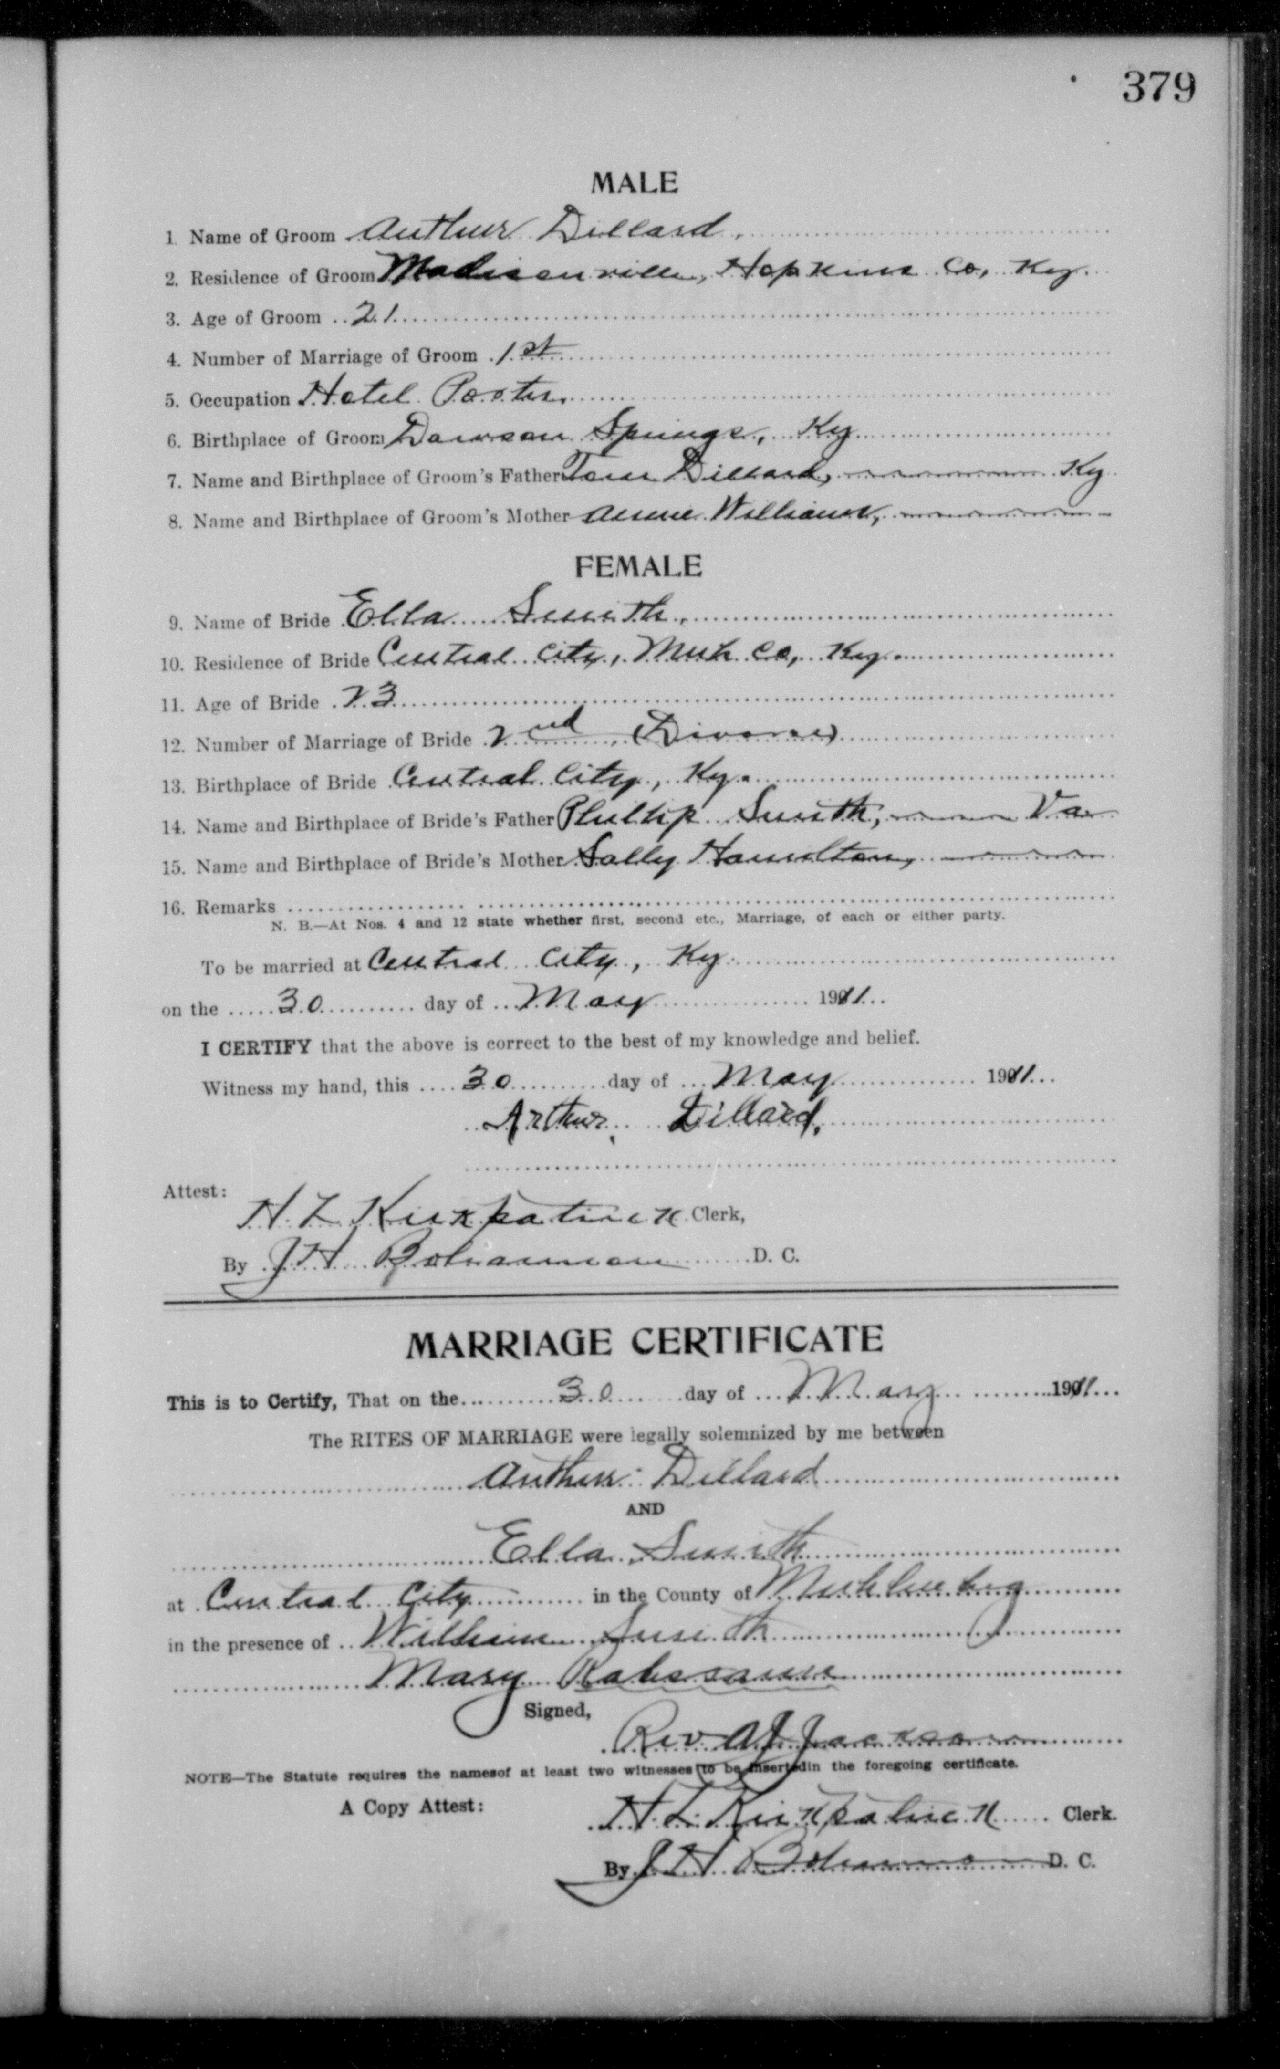 379
MALE
1. Name of Groom Authur Dillard.
2. Residence of Groom Madisonville, Hopkins Co, Ky.
3. Age of Groom 21
4. Number of Marriage of Groom 1st
5. Occupation Hotel Porter.
6. Birthplace of Groom Dawson Springs, Ky
7. Name and Birthplace of Groom's Father Tom Dillard, Ky
8. Name and Birthplace of Groom's Mother Williams,
FEMALE
9. Name of Bride Ella Smith.
10. Residence of Bride Central City, Muh Co, Ky.
11. Age of Bride 23
12. Number of Marriage of Bride 2nd (Divorce)
13. Birthplace of Bride Central City, Ky.
14. Name and Birthplace of Bride's Father Phillip Smith, Va
15. Name and Birthplace of Bride's Mother Sally Hamilton,
16. Remarks
N. B.—At Nos. 4 and 12 state whether first, second etc., Marriage, of each or either party.
To be married at Central City, Ky
on the 30 day of May 1911
I CERTIFY that the above is correct to the best of my knowledge and belief.
Witness my hand, this 30 day of May 1911
Arthur Dillard.
Attest:
H. L Kirkpatrick Clerk,
By J H Bohannon D. C.
MARRIAGE CERTIFICATE
This is to Certify, That on the 30 day of May 1911
The RITES OF MARRIAGE were legally solemnized by me between
Authur Dillard
AND
Ella Smith
at Central City in the County of Muhlenberg
in the presence of William Smith
Mary
Signed,
Rev A J Jackson
NOTE—The Statute requires the namesof at least two witnesses to be insertedin the foregoing certificate.
A Copy Attest:
H. L. Kirkpatrick Clerk.
By J H Bohannon D. C.